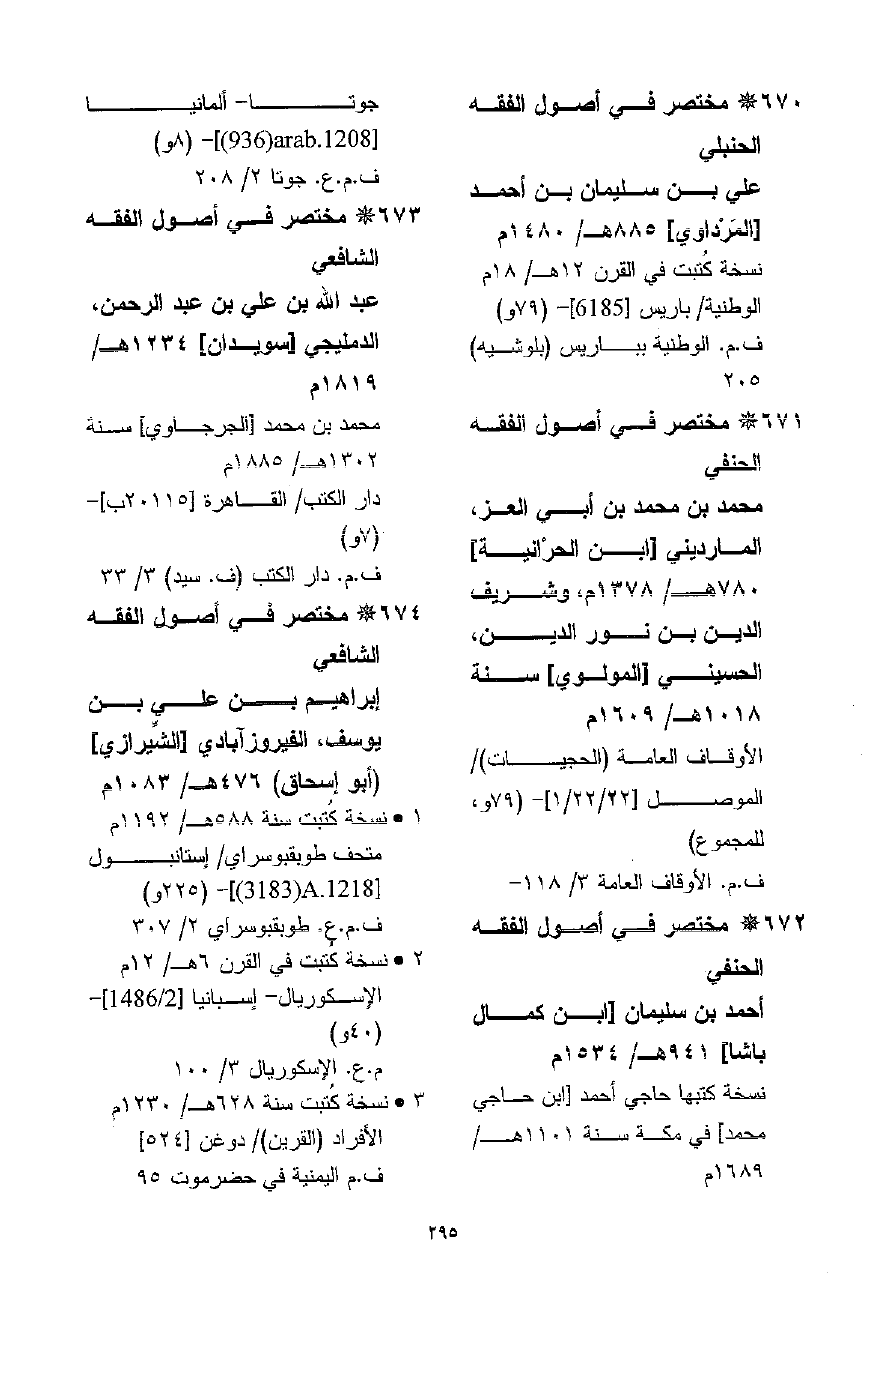 ٦٧٠ ❋ مختصر في أصول الفقه
الحنبلي
علي بن سليمان بن أحمد
[المَرْداوي] ٨٨٥هـ/ ١٤٨٠م
نسخة كُتبت في القرن ١٢هـ/ ١٨م
الوطنية/ باريس [6185]- (٧٩و)
ف.م. الوطنية بباريس (بلوشيه)
٢٠٥
٦٧١ ❋ مختصر في أصول الفقه
الحنفي
محمد بن محمد بن أبي العز،
المارديني [ابن الحرّانية]
٧٨٠هـ/ ١٣٧٨م، وشريف
الدين بن نور الدين،
الحسيني [المولوي] سنة
١٠١٨هـ/ ١٦٠٩م
الأوقاف العامة (الحجيات)/
الموصل [١/٢٢/٢٢]- (٧٩و،
للمجموع)
ف.م. الأوقاف العامة ٣/ ١١٨-
٦٧٢ ❋ مختصر في أصول الفقه
الحنفي
أحمد بن سليمان [ابن كمال
باشا] ٩٤١هـ/ ١٥٣٤م
نسخة كتبها حاجي أحمد [ابن حاجي
محمد] في مكة سنة ١١٠١هـ/
١٦٨٩م
جوتا- ألمانيا
[936)arab.1208)]- (٨و)
ف.م.ع. جوتا ٢/ ٢٠٨
٦٧٣ ❋ مختصر في أصول الفقه
الشافعي
عبد الله بن علي بن عبد الرحمن،
الدمليجي [سويدان] ١٢٣٤هـ/
١٨١٩م
محمد بن محمد [الجرجاوي] سنة
١٣٠٢هـ/ ١٨٨٥م
دار الكتب/ القاهرة [٢٠١١٥ب]-
(٧و)
ف.م. دار الكتب (ف. سيد) ٣/ ٣٣
٦٧٤ ❋ مختصر في أصول الفقه
الشافعي
إبراهيم بن علي بن
يوسف، الفيروزآبادي [الشّيرازي]
(أبو إسحاق) ٤٧٦هـ/ ١٠٨٣م
١ • نسخة كُتبت سنة ٥٨٨هـ/ ١١٩٢م
متحف طوبقبوسراي/ إستانبول
[3183)A.1218)]- (٢٢٥و)
ف.م.ع. طوبقبوسراي ٢/ ٣٠٧
٢ • نسخة كُتبت في القرن ٦هـ/ ١٢م
الإسكوريال- إسبانيا [1486/2]-
(٤٠و)
م.ع. الإسكوريال ٣/ ١٠٠
٣ • نسخة كُتبت سنة ٦٢٨هـ/ ١٢٣٠م
الأفراد (القرين)/ دوغن [٥٢٤]
ف.م اليمنية في حضرموت ٩٥
٢٩٥